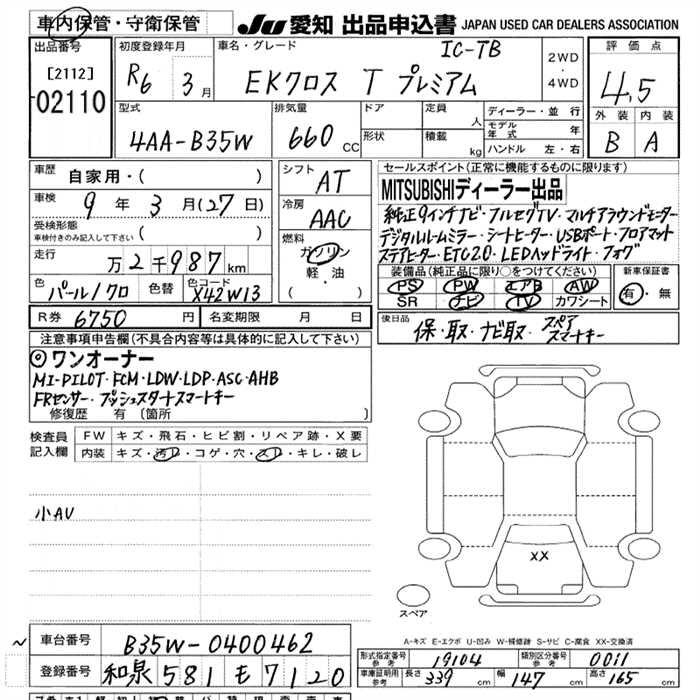 車内保管・守衛保管
JU 愛知 出品申込書 JAPAN USED CAR DEALERS ASSOCIATION
出品番号
[2112]
02110
初度登録年月
R6 3月
車名・グレード
IC-TB
EKクロス T プレミアム
2WD
・
4WD
評価点
4.5
外装 内装
B A
型式
4AA-B35W
排気量
660 CC
ドア
形状
定員
人
積載
kg
ディーラー・並行
モデル年式 年
ハンドル 左・右
車歴
自家用・( )
車検
9年3月(27日)
受検形態
車検付きのみ記入して下さい ( )
走行
万2千987km
色
パール/クロ
色替
色コード
X42W13
シフト
AT
冷房
AAC
燃料
ガソリン
軽・油
( )
セールスポイント(正常に機能するものに限ります)
MITSUBISHIディーラー出品
純正9インチナビ・フルセグTV・マルチアラウンドモニター
デジタルルームミラー・シートヒーター・USBポート・フロアマット
ステアヒーター・ETC2.0・LEDヘッドライト・フォグ
装備品(純正品に限り○をつけてください)
PS PW エアB AW
SR ナビ TV カワシート
新車保証書
有・無
R券 6750円
名変期限 月 日
後日品
保・取・ナビ取・スペアスマートキー
注意事項申告欄(不具合内容等は具体的に記入して下さい)
◎ワンオーナー
MI-PILOT・FCM・LDW・LDP・ASC・AHB
FRセンサー・プッシュスタートスマートキー
修復歴 有 〔箇所 〕
検査員記入欄
FW キズ・飛石・ヒビ割・リペア跡・X要
内装 キズ・汚レ・コゲ・穴・スレ・キレ・破レ
小AU
XX
スペア
A-キズ E-エクボ U-凹み W-補修跡 S-サビ C-腐食 XX-交換済
〜
車台番号
B35W-0400462
登録番号
和泉 581 モ 7120
形式指定番号
参考
19104
類別区分番号
参考
0011
車庫証明用
参考
長さ 339 cm
幅 147 cm
高さ 165 cm